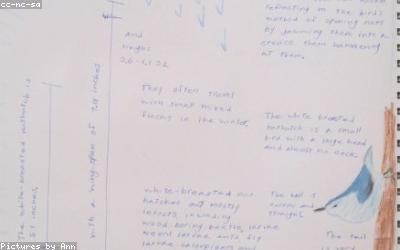 cc-nc-sa
reflecting on the bird's
method of opening nuts
by jamming them into a
crevice then hammering
at them.
and
weighs
0.6-1.1 oz
They often travel
with small mixed
flocks in the winter.
with a wing-span of
inches
The white-breasted nuthatch is
5.1 inches,
The white breasted
nuthatch is a small
bird with a large head
and almost no neck.
white-breasted nut
hatches eat mostly
insects, including
wood-boring beetle larvae
The bill is
narrow and
straight.
The tail
is very
Pictures by Ann